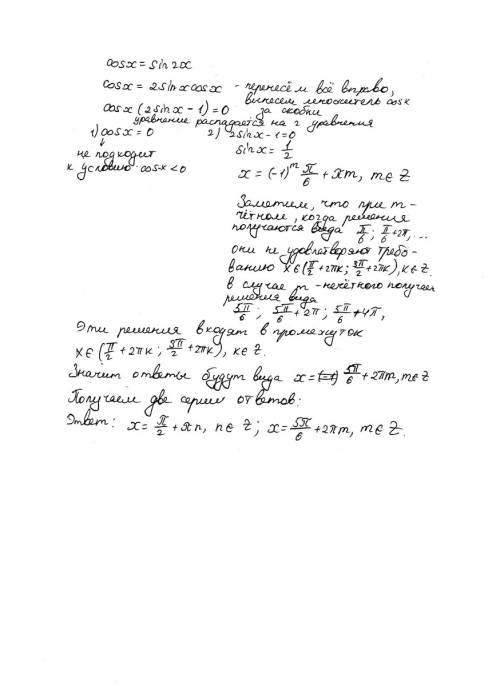 cosx = sin2x
cosx = 2sinx cosx - перенесём всё вправо,
вынесем множитель cosx
cosx (2sinx - 1) = 0 за скобки
уравнение распадается на 2 уравнения
1) cosx = 0 2) 2sinx - 1 = 0
↓
не подходит
к условию cosx < 0
sinx = 1/2
x = (-1)^m π/6 + πm, m ∈ Z
Заметим, что при m -
чётном, когда решения
получаются вида π/6; π/6 + 2π, ...
они не удовлетворяют требо-
ванию x ∈ (π/2 + 2πk; 3π/2 + 2πk), k ∈ Z.
в случае m - нечётного получаем
решения вида
5π/6; 5π/6 + 2π; 5π/6 + 4π,
Эти решения входят в промежуток
x ∈ (π/2 + 2πk; 3π/2 + 2πk), k ∈ Z.
Значит ответы будут вида x = 5π/6 + 2πm, m ∈ Z
Получаем две серии ответов:
Ответ: x = π/2 + πn, n ∈ Z; x = 5π/6 + 2πm, m ∈ Z.